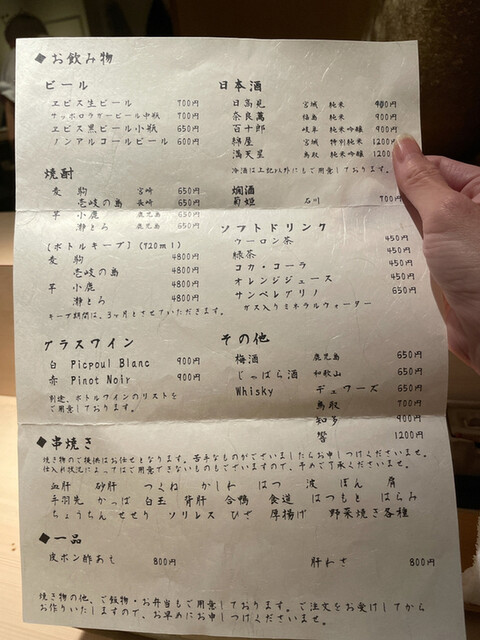 ◆お飲み物
ビール
ヱビス生ビール 700円
サッポロラガービール中瓶 700円
ヱビス黒ビール小瓶 650円
ノンアルコールビール 600円
日本酒
日高見 宮城 純米 900円
奈良萬 福島 純米 900円
百十郎 岐阜 純米吟醸 900円
綿屋 宮城 特別純米 1200円
満天星 鳥取 純米吟醸 1200
冷酒は上記以外にもご用意しております。
燗酒
菊姫 石川 700円
焼酎
麦 駒 宮崎 650円
壱岐の島 長崎 650円
芋 小鹿 鹿児島 650円
灘とろ 鹿児島 650円
[ボトルキープ] (720ml)
麦 駒 4800円
壱岐の島 4800円
芋 小鹿 4800円
灘とろ 4800円
キープ期間は、3ヶ月とさせていただきます。
ソフトドリンク
ウーロン茶 450円
緑茶 450円
コカ・コーラ 450円
オレンジジュース 450円
サンペレグリノ 650円
ガス入りミネラルウォーター
グラスワイン
白 Picpoul Blanc 900円
赤 Pinot Noir 900円
別途、ボトルワインのリストを
ご用意しております。
その他
梅酒 鹿児島 650円
じゃばら酒 和歌山 650円
Whisky デュワーズ 650円
鳥取 700円
知多 900円
響 1200円
◆串焼き
焼き物のご提供はお任せとなります。苦手なものがございましたらお申しつけくださいませ。
仕入れ状況によってはご用意できないものもございますので、予めご了承くださいませ。
血肝 砂肝 つくね かしわ はつ 波 ぼん 肩
手羽先 かっぱ 白玉 背肝 合鴨 食道 はつもと はらみ
ちょうちん せせり ソリレス ひざ 厚揚げ 野菜焼き各種
◆一品
皮ポン酢あえ 800円
肝わさ 800円
焼き物の他、ご飯物・お弁当もご用意しております。ご注文をお受けしてから
お作りいたしますので、お早めにお申しつけくださいませ。